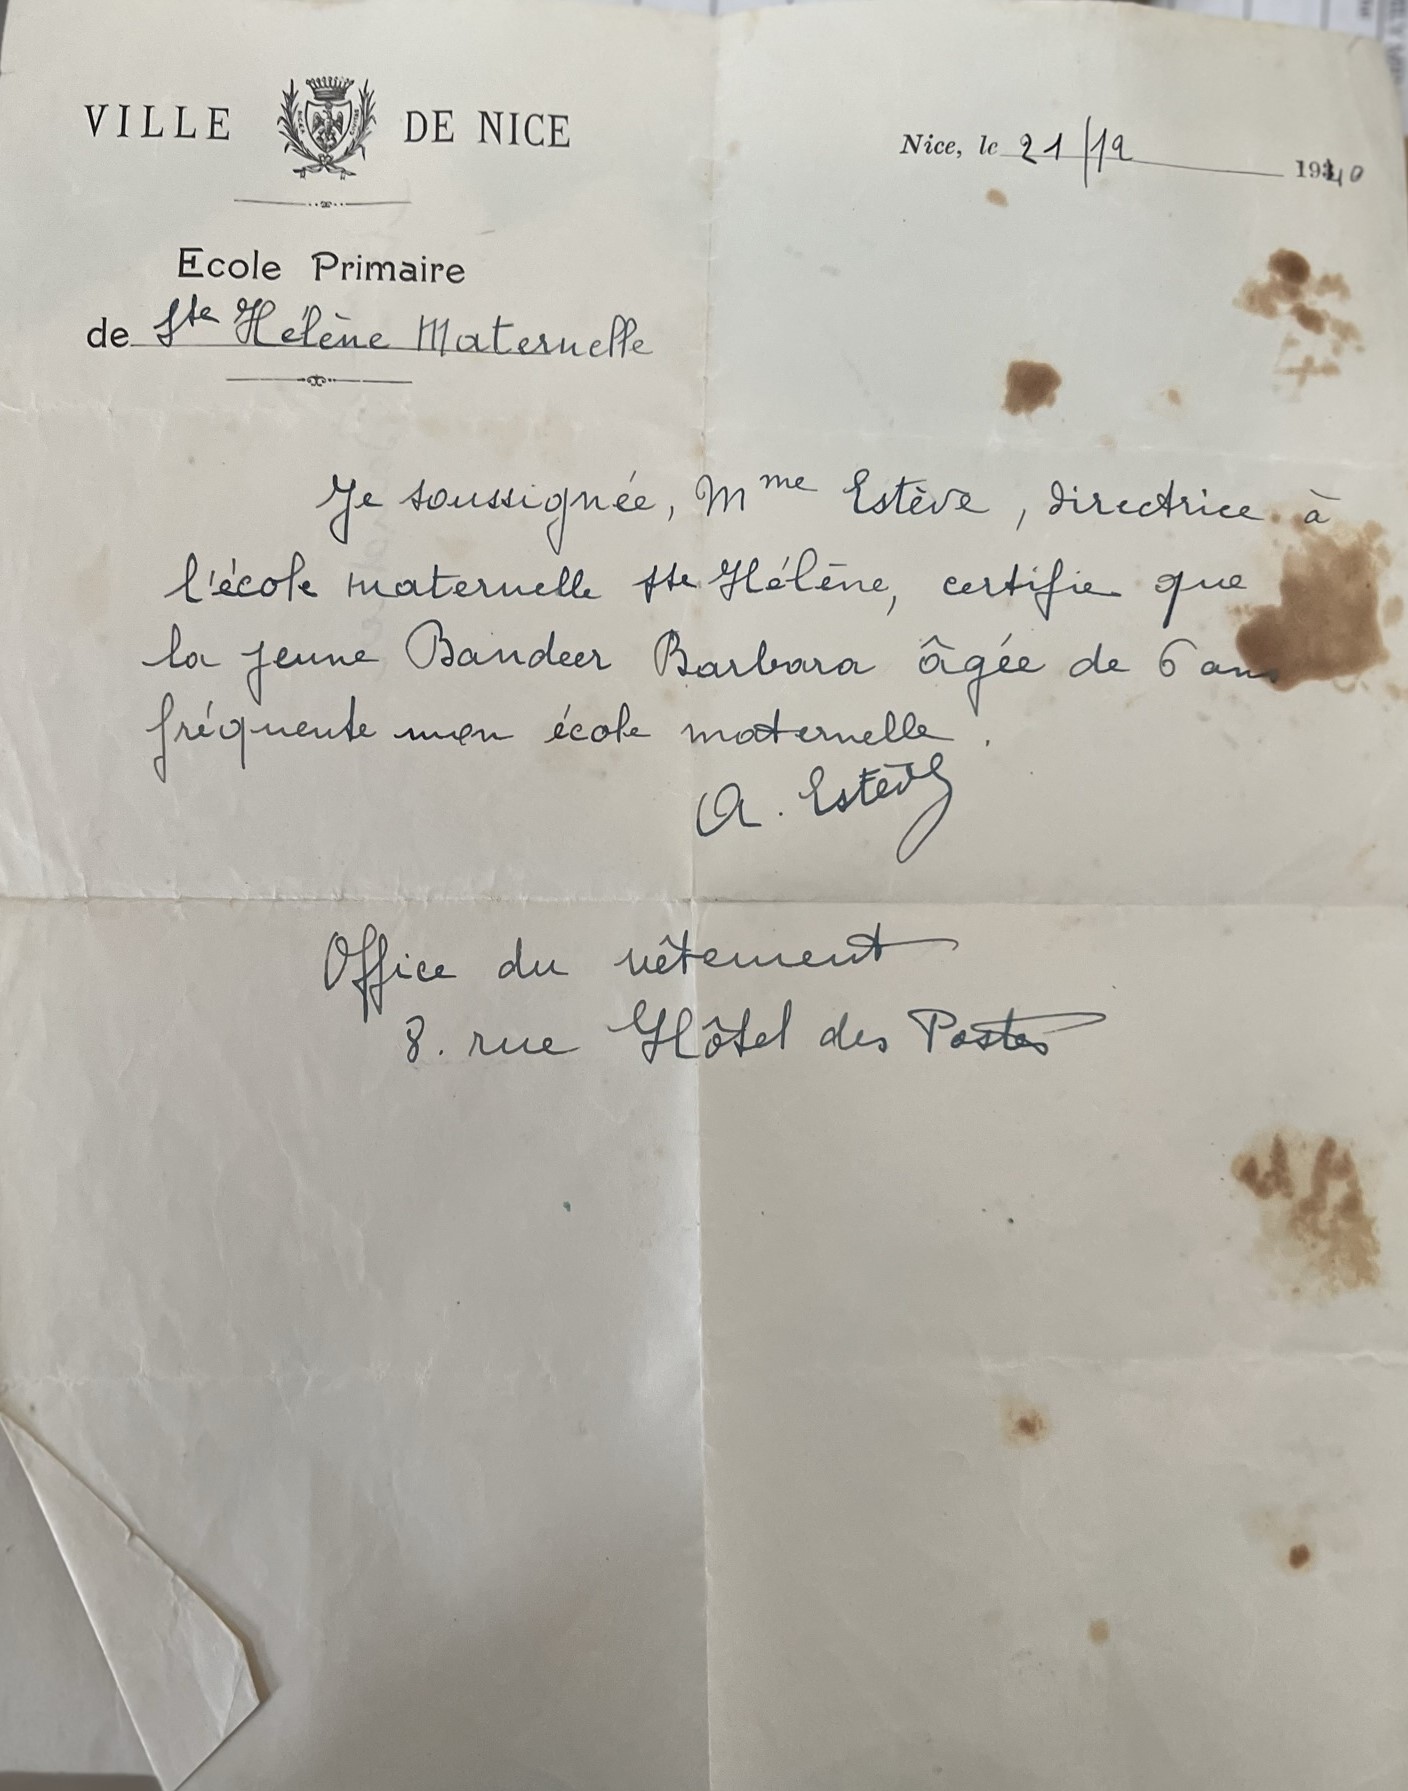 VILLE DE NICE
Nice, le 21/12 1940
Ecole Primaire
de Ste Hélène Maternelle
Je soussignée, Mme Estève, directrice à
l'école maternelle Ste Hélène, certifie que
la jeune Bandeer Barbara âgée de 6 ans
fréquente mon école maternelle.
A. Estève
Office du vêtement
8. rue Hôtel des Postes